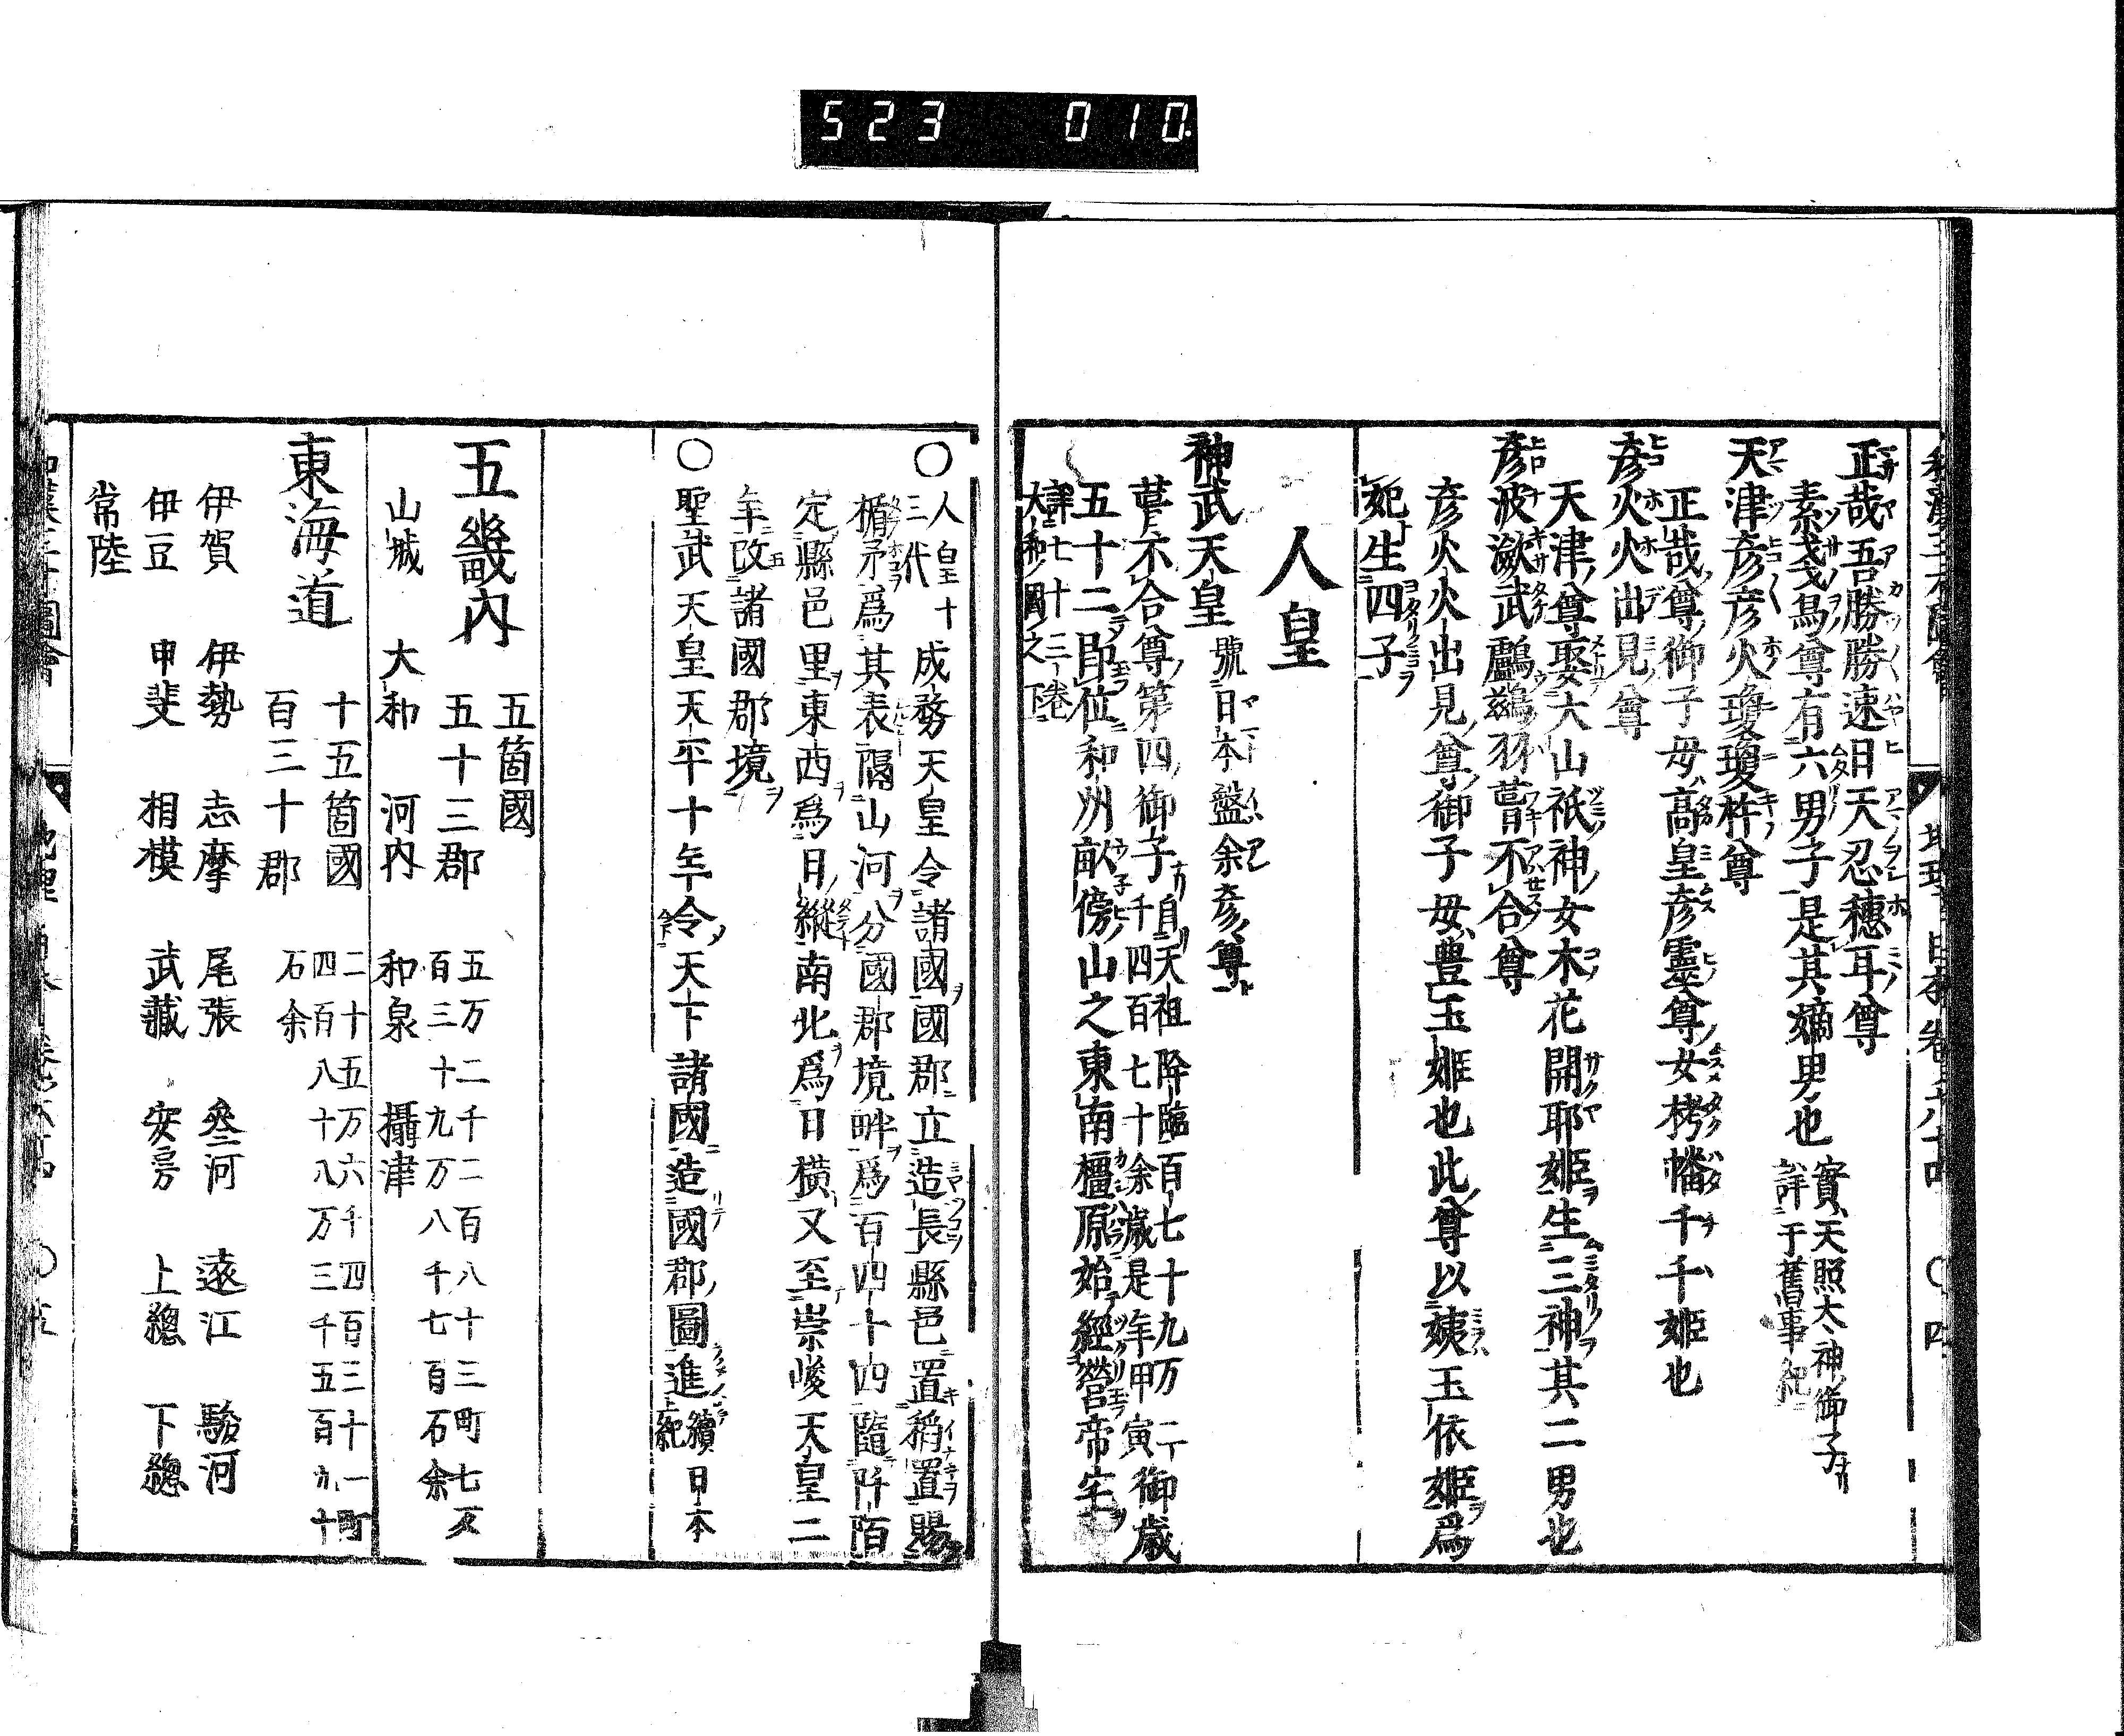 523 010.
和漢三才圖會 地理 日本 卷之六十四 〇四
正哉吾勝勝速日天忍穗耳尊
素戔烏尊有六男子是其嫡男也 實天照太神御子
詳于舊事紀
天津彦彦火瓊瓊杵尊
正哉尊御子母高皇彦靈尊女栲幡千千姫也
彦火火出見尊
天津尊娶大山祇神女木花開耶姫生三神其二男也
彦波瀲武鸕鷀羽葺不合尊
彦火火出見尊御子母豊玉姫也此尊以姨玉依姫爲
妃生四子
人皇
神武天皇 號日本盤余彦尊
葺不合尊第四御子 自天祖降臨百七十九万二
千四百七十余歳是年甲寅 御歳
五十二即位和州畝傍山之東南橿原始經營帝宅
詳七十三卷
大和國之下
〇人皇十
三代 成務天皇令諸國國郡立造長縣邑置稻置賜
楯矛爲其表隔山河分國郡境畔爲百四十四隨阡陌
定縣邑里東西爲日縱南北爲日横又至崇峻天皇二
年改諸國郡境
〇聖武天皇天平十年令天下諸國造國郡圖進 續日本
紀
五畿内 五箇國
五十三郡 五万二千二百八十三町七反
百三十九万八千七百石余
山城 大和 河内 和泉 攝津
東海道 十五箇國
百三十郡 二十五万六千四百三十一町
四百八十八万三千五百九十
石余
伊賀 伊勢 志摩 尾張 叅河 遠江 駿河
伊豆 甲斐 相模 武藏 安房 上總 下總
常陸